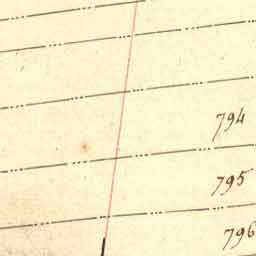 794
795
796